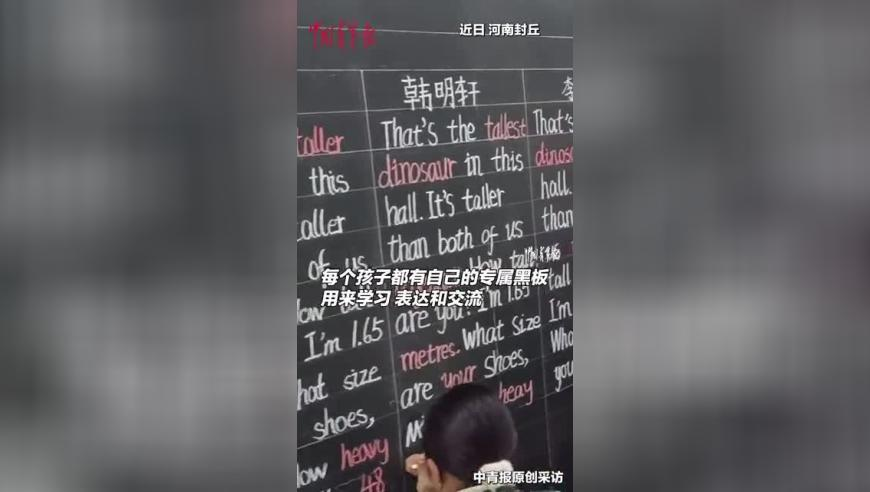 近日 河南封丘
中国青年报
韩明轩
李
taller
this
taller
of us
I'm 1.65
hat size
shoes,
ow heavy
48
That's the tallest
dinosaur in this
hall. It's taller
than both of us
How tall
are you? I'm 1.65
metres. What size
are your shoes,
heay
That's
dinosa
hall.
than
tall
I'm
Wha
you
每个孩子都有自己的专属黑板
用来学习 表达和交流
中青报原创采访